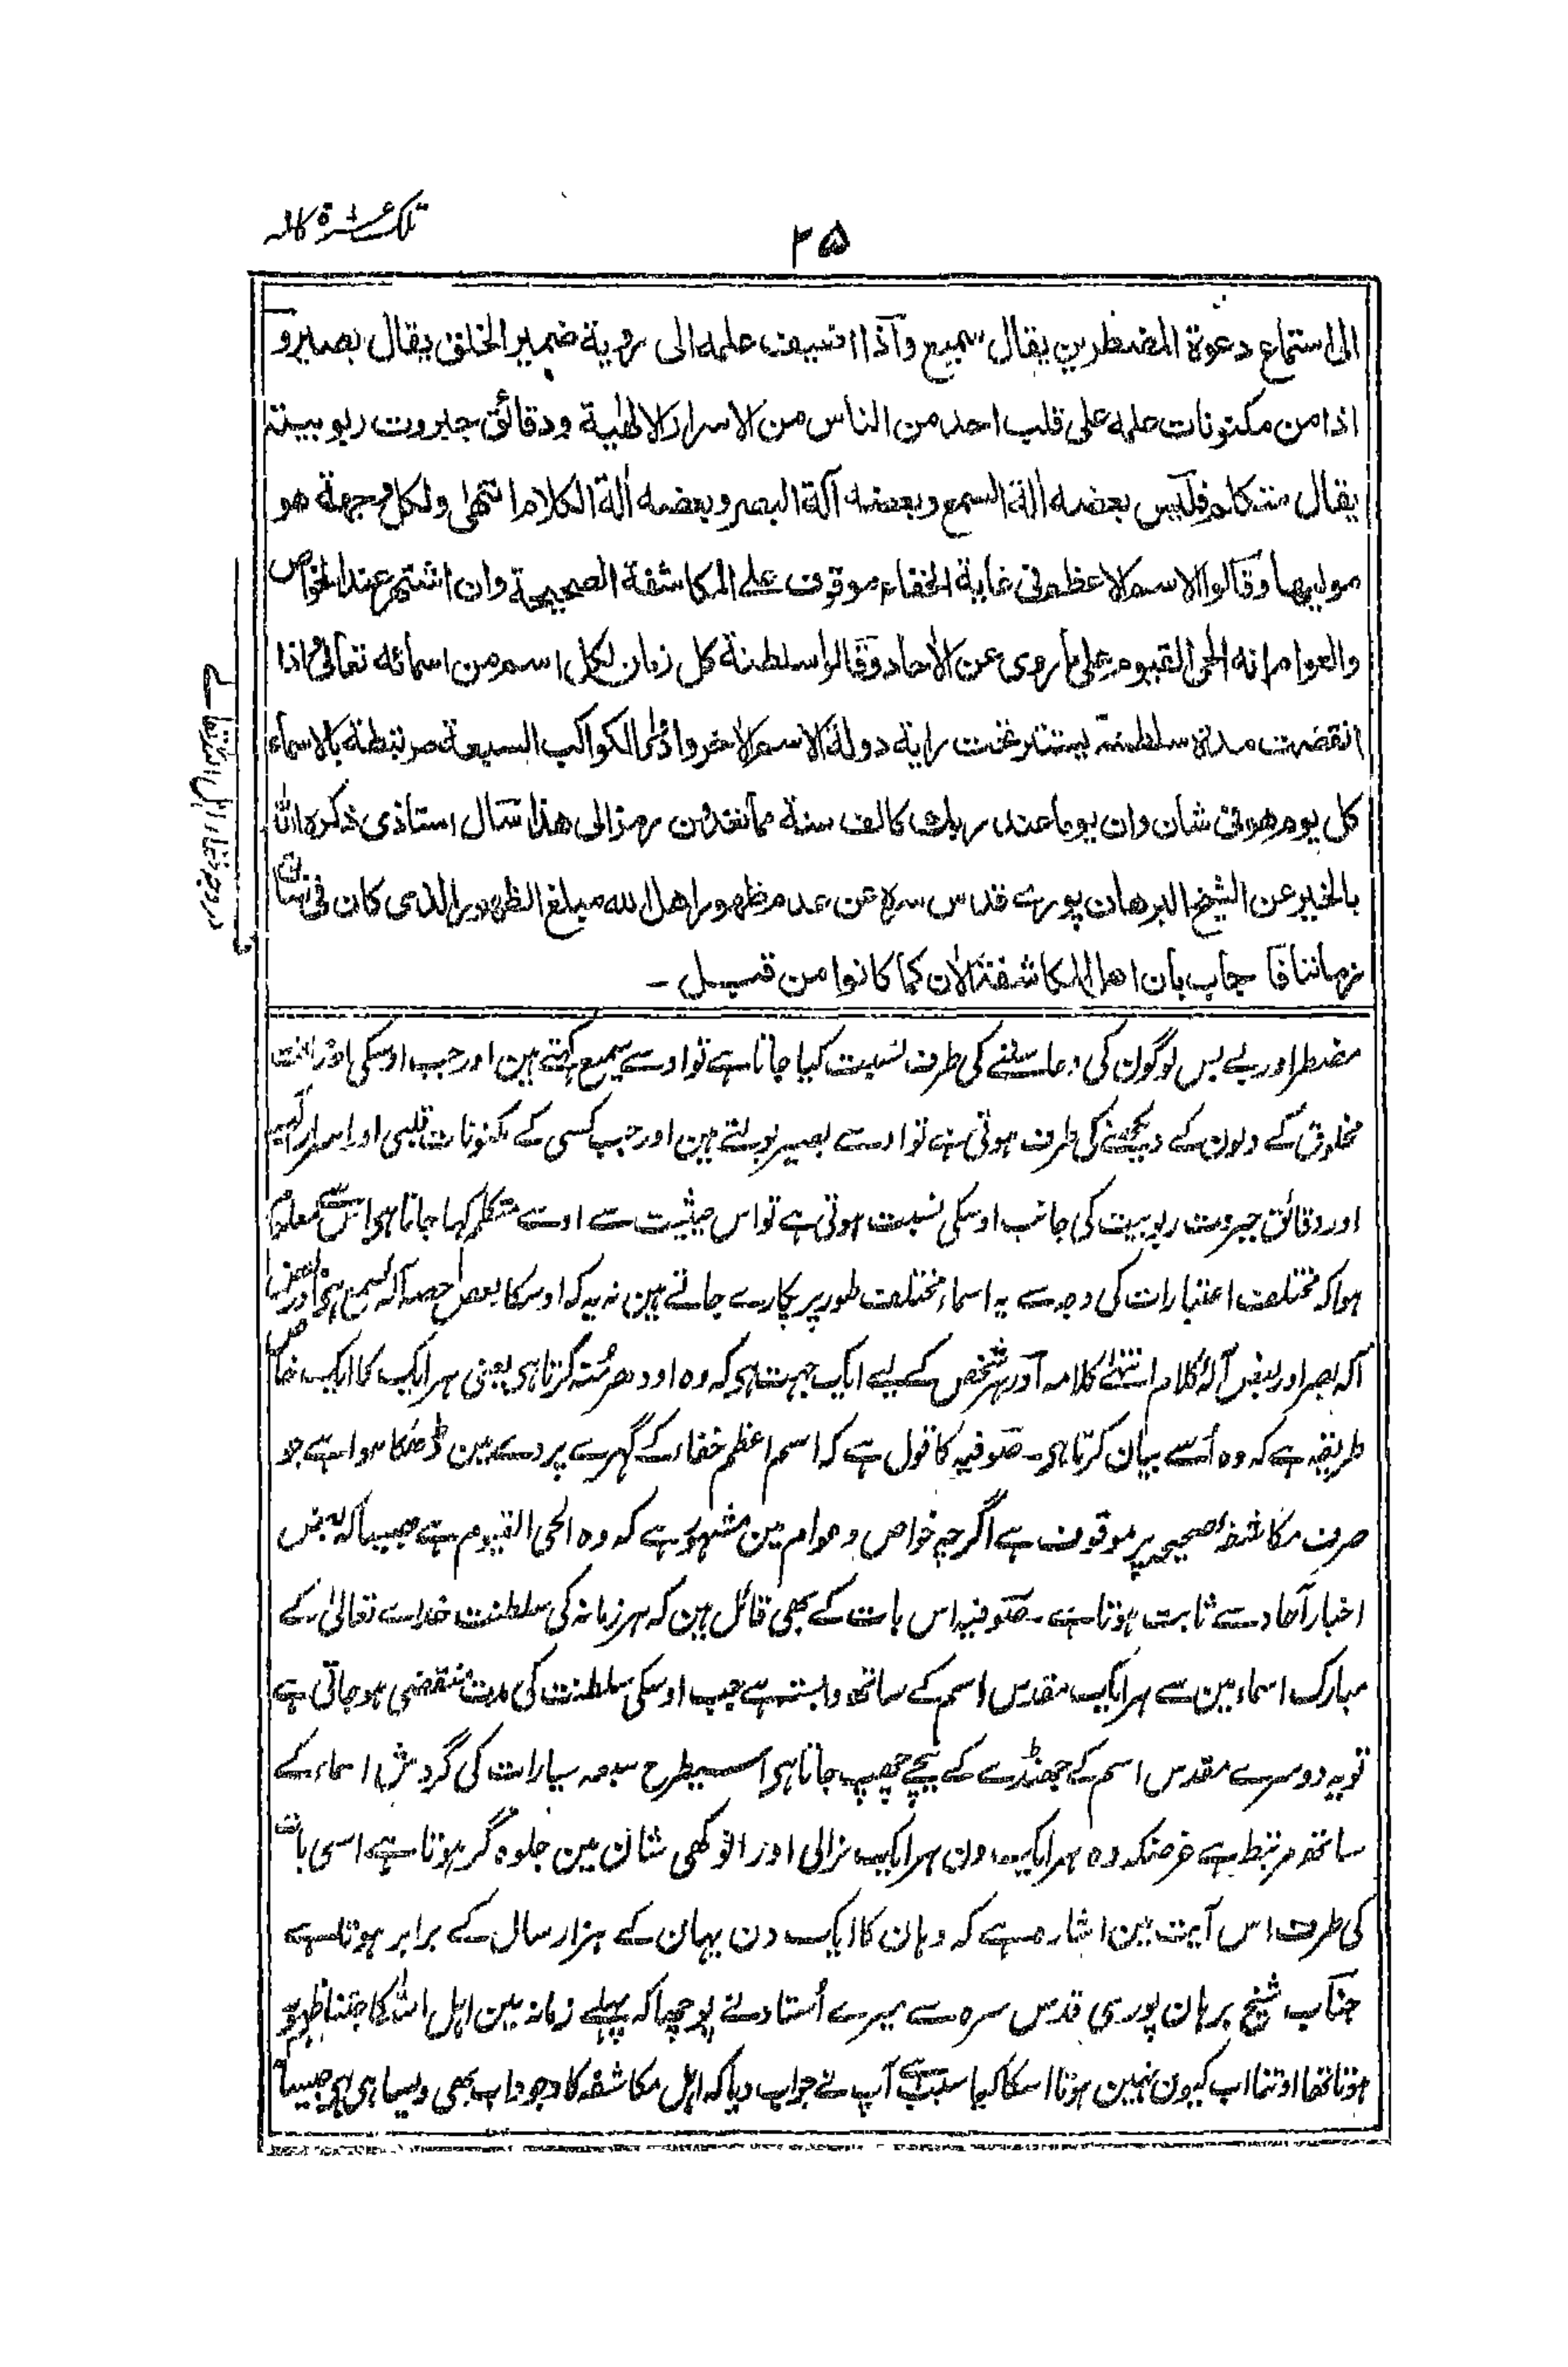 تلک عشرة کاملہ
۲۵
الی استماع دعوة المضطرین یقال سمیع وآذا اضیف علمه الی رویة ضمیر الخلق یقال بصیر و
اذا من مکنونات علمه علی قلب احد من الناس من الاسرار الالٰهیة ودقائق جبروت ربوبیته
یقال متکلم فلیس بعضه اٰلة السمع وبعضه آلة البصر وبعضه اٰلة الکلام انتهٰی ولکل وجهة هو
مولیها وقالوا الاسم الاعظم فی غایة الخفاء موقوف علے المکاشفة الصحیحة وان اشتهر عند الخواص
والعوام انه الحی القیوم علی ما روی عن الاحاد وقالوا سلطنة کل زمان لکل اسم من اسمائه تعالیٰ اذا
انقضت مدة سلطنته یستتر تحت رایة دولة الاسم الاٰخر وادٰی الکواکب السبعة مرتبطة بالاسماء
کل یوم هو فی شان وان یوما عند ربک کالف سنة مما تعدون رمز الی هذا سأل استاذی ذکره الله
بالخیر عن الشیخ البرهان پورے قدس سره عن عدم ظهور اهل الله مبلغ الظهور الذی کان فی
زماننا فاجاب بان اهل المکاشفة الاٰن کما کانوا من قبل ۔
مضطر اور بے بس لوگون کی دعا سننے کی طرف نسبت کیا جاتا ہے تو اوسے سمیع کہتے ہین اور جب اوسکی
مخلوق کے دلون کے دیکھنے کی طرف ہوتی ہے تو اوسے بصیر بولتے ہین اور جب کسی کے مکنونات قلبی اور اسرار الٰہیہ
اور دقائق جبروت ربوبیت کی جانب اوسکی نسبت ہوتی ہے تو اس حیثیت سے اوسے متکلم کہا جاتا ہی اس سے معلوم
ہوا کہ مختلف اعتبارات کی وجہ سے یہ اسماء مختلف طور پر پکارے جاتے ہین نہ یہ کہ اوسکا بعض حصہ آلہ سمع ہی اور بعض
آلہ بصر اور بعض آلہ کلام انتہٰے کلامہ اور ہر شخص کے لیے ایک جہت ہی کہ وہ اودھر مُنہ کرتا ہی یعنی ہر ایک کا ایک خاص
طریقہ ہے کہ وہ اُسے بیان کرتا ہی ۔ صوفیہ کا قول ہے کہ اسم اعظم خفاء کے گہرے پردے مین ڈھکا ہوا ہے جو
صرف مکاشفہ صحیحہ پر موقوف ہے اگرچہ خواص و عوام مین مشہور ہے کہ وہ الحی القیوم ہے جیسا کہ بعض
اخبار آحاد سے ثابت ہوتا ہے ۔ صوفیہ اس بات کے بھی قائل ہین کہ ہر زمانہ کی سلطنت خداے تعالیٰ کے
مبارک اسماء مین سے ہر ایک مقدس اسم کے ساتھ وابستہ ہے جب اوسکی سلطنت کی مدت منقضی ہو جاتی ہے
تو یہ دوسرے مقدس اسم کے جھنڈے کے نیچے چھپ جاتا ہی اسیطرح سبعہ سیارات کی گردش اسماء کے
ساتھ مرتبط ہے غرضکہ وہ ہر ایک دن ہر ایک نرالی اور انوکھی شان مین جلوہ گر ہوتا ہے اسی بات
کی طرف اس آیت مین اشارہ ہے کہ وہان کا ایک دن یہان کے ہزار سال کے برابر ہوتا ہے
جناب شیخ برہان پوری قدس سرہ سے میرے اُستاد نے پوچھا کہ پہلے زمانہ مین اہل اللہ کا جتنا ظہور
ہوتا تھا اوتنا اب کیون نہین ہوتا اسکا کیا سبب ہے آپ نے جواب دیا کہ اہل مکاشفہ کا وجود اب بھی ویسا ہی ہی جیسا